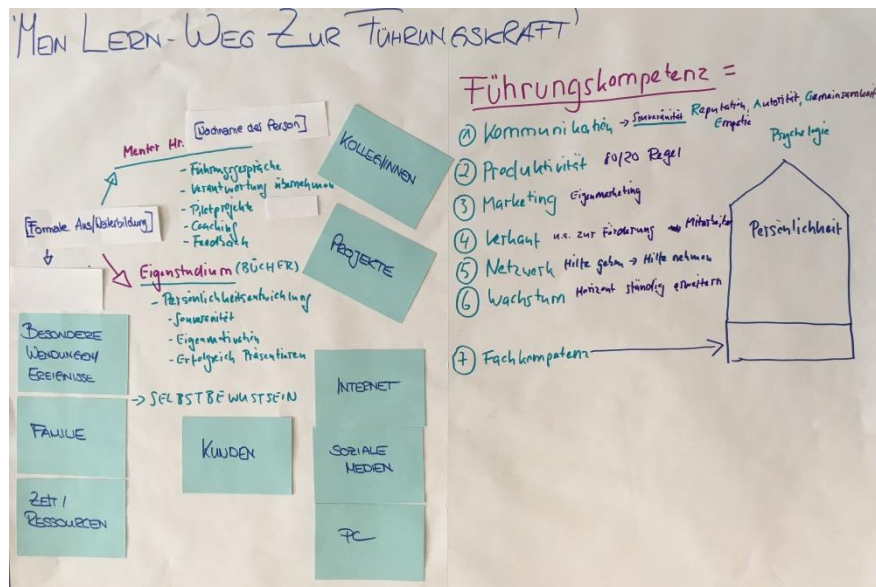 'MEIN LERN-WEG ZUR FÜHRUNGSKRAFT'
Mentor Hr. [Nachname der Person]
- Führungsgespräche
- Verantwortung übernehmen
- Pilotprojekte
- Coaching
- Feedback
[Formale Aus/Weiterbildung]
Eigenstudium (BÜCHER)
- Persönlichkeitsentwicklung
- Souveränität
- Eigenmotivation
- Erfolgreich Präsentieren
→ SELBSTBEWUSTSEIN
KOLLEG/INNEN
PROJEKTE
BESONDERE
WENDUNGEN/
EREIGNISSE
FAMILIE
ZEIT/
RESSOURCEN
KUNDEN
INTERNET
SOZIALE
MEDIEN
PC
Führungskompetenz =
① Kommunikation → Souveränität Reputation, Autorität, Gemeinsamkeit
Empatie
② Produktivität 80/20 Regel
③ Marketing Eigenmarketing
④ Verkauf u.a. zur Förderung → Mitarbeiter
⑤ Netzwerk Hilfe geben → Hilfe nehmen
⑥ Wachstum Horizont ständig erweitern
⑦ Fachkompetenz
Psychologie
Persönlichkeit